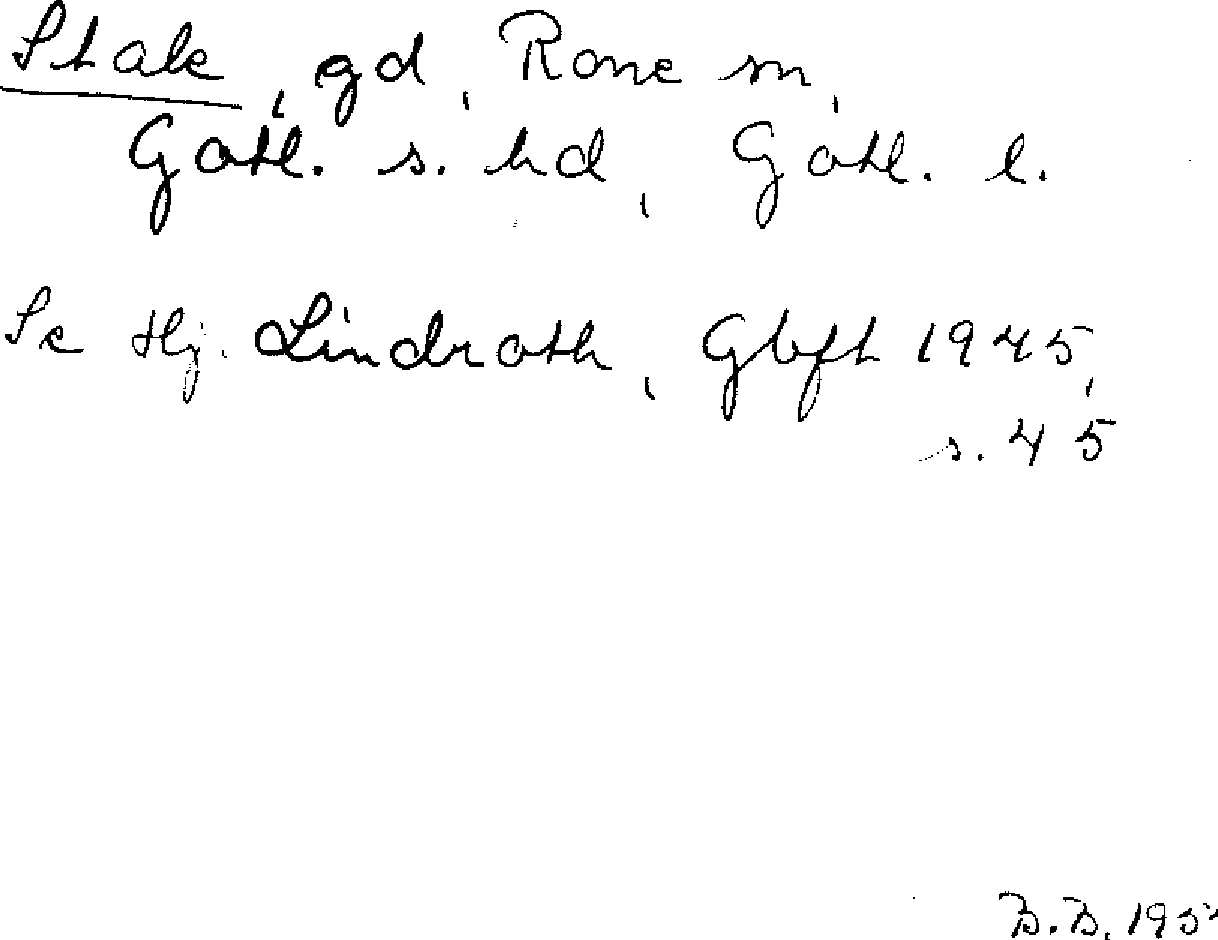 Stale, gd, Rone sn,
Gotl. s. hd, Gotl. l.
Se Hj. Lindroth, Gbft 1945,
s. 45
B.B.